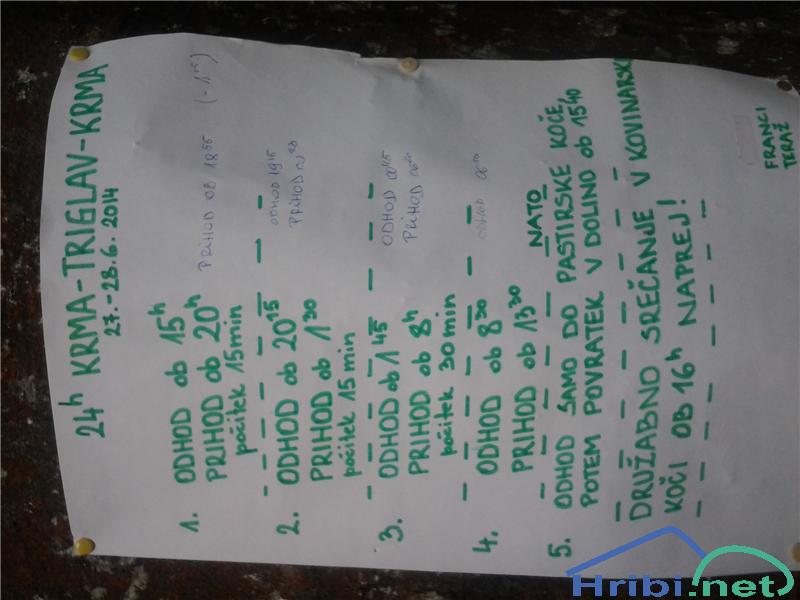 24h KRMA-TRIGLAV-KRMA
27.-28.6.2014
1. ODHOD ob 15h
PRIHOD ob 20h PRIHOD OB 1855
počitek 15min
2. ODHOD ob 2015 ODHOD 1915
PRIHOD ob 130 PRIHOD
počitek 15min
3. ODHOD ob 145 ODHOD
PRIHOD ob 8h PRIHOD
počitek 30min
4. ODHOD ob 830 ODHOD
PRIHOD ob 1330 NATO
5. ODHOD SAMO DO PASTIRSKE KOČE,
POTEM POVRATEK V DOLINO ob 1540
DRUŽABNO SREČANJE V KOVINARSKI
KOČI OB 16h NAPREJ!
FRANCI
TERAŽ
Hribi.net